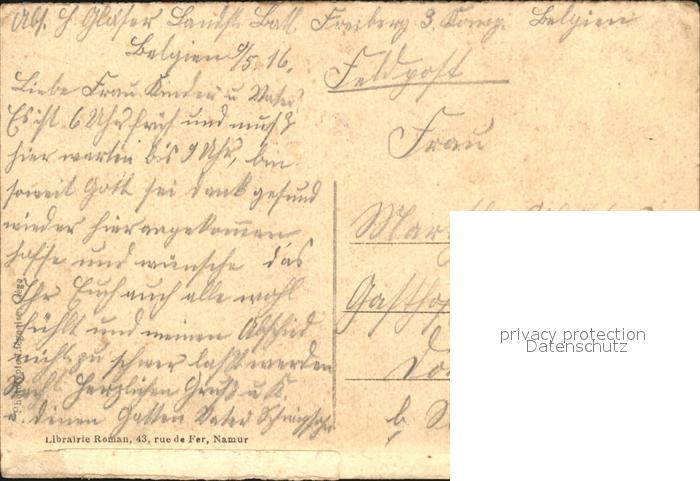 Abs. H Gläser Landst. Batt. Freiberg 3. Komp. Belgien
Belgien /5. 16.
Feldpost
Liebe Frau Kinder u Vater
Es ist 6 Uhr früh und muß
hier warten bis 9 Uhr, bin
soweit Gott sei dank gesund
wieder hier angekommen
hoffe und wünsche das
Ihr Euch auch alle wohl
fühlt und meinen Abschied
nicht zu schwer laßt werden
Herzlichen Gruß u. K.
v. deinen Gatten Vater
Frau
Gasthof
b.
Librairie Roman, 43, rue de Fer, Namur
privacy protection
Datenschutz